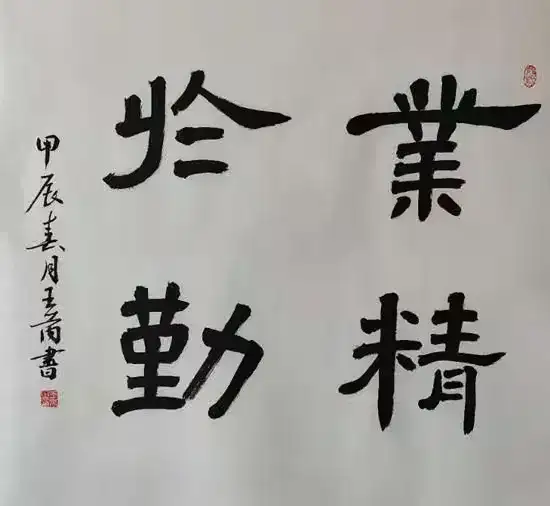 業精
於勤
甲辰春月王蘭書